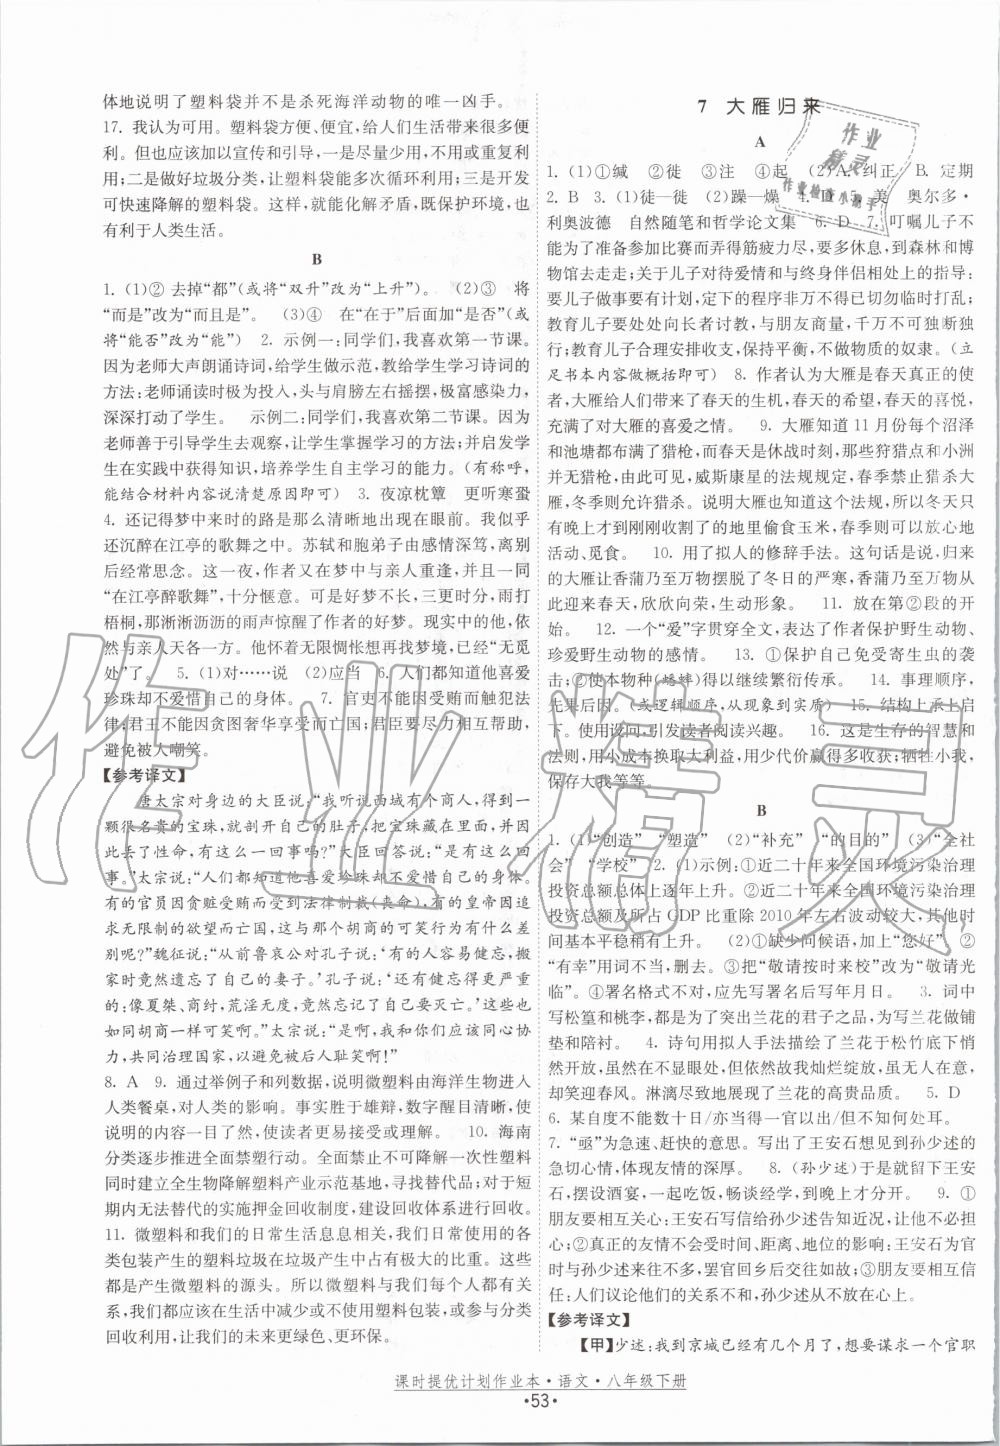 体地说明了塑料袋并不是杀死海洋动物的唯一凶手。
17. 我认为可用。塑料袋方便、便宜,给人们生活带来很多便利。
但也应该加以宣传和引导,一是尽量少用,不用或重复使
用;二是做好垃圾分类,让塑料袋能多次循环利用;三是开发
可快速降解的塑料袋。这样,就能化解矛盾,既保护环境,也
有利于人类生活。
B
1. (1)② 去掉“都”(或将“双升”改为“上升”)。 (2)③ 将
“而是”改为“而且是”。 (3)④ 在“在于”后面加“是否”(或
将“能否”改为“能”) 2. 示例一:同学们,我喜欢第一节课。
因为老师大声朗诵诗词,给学生做示范,教给学生学习诗词的
方法;老师诵读时极为投入,头与肩膀左右摇摆,极富感染力,
深深打动了学生。 示例二:同学们,我喜欢第二节课。因为
老师善于引导学生去观察,让学生掌握学习的方法;并能结合
在实践中获得知识,培养学生自主学习的能力。(有称呼,
能结合材料内容说清楚原因即可) 3. 夜凉枕簟 更听寒蛩
4. 还记得梦中来时的路是那么清晰地出现在眼前。我似乎
还沉醉在江亭的歌舞之中。苏轼和胞弟子由感情深笃,离别
后经常思念。这一夜,作者又在梦中与亲人重逢,并且一同
“在江亭醉歌舞”,十分惬意。可是好梦不长,三更时分,雨打
梧桐,那淅淅沥沥的雨声惊醒了作者的好梦。现实中,作者
与亲人天各一方。他怀着无限惆怅想再找梦境,已经“无觅
处”了。 5. (1)对……说 (2)应当 6. 人们都知道他喜爱
珍珠却不爱惜自己的身体。 7. 官吏不能因受贿而触犯法
律,君王不能因贪图奢华享受而亡国;君臣要尽力相互帮助,
避免被人嘲笑。
【参考译文】
唐太宗对身边的大臣说:“我听说西域有个商人,得到一
颗很名贵的宝珠,就剖开自己的肚子,把宝珠藏在里面,从
而丢了性命,有这么一回事吗?”大臣回答说:“是有这么回
事。”太宗说:“人们都知道他喜爱珍珠却不爱惜自己的身体。
有的官员因贪赃受贿而受到法律制裁(丧命),有的皇帝因
追求无限制的欲望而亡国,这与那个胡商的可笑行为有什么差
别呢?”魏征说:“从前鲁哀公对孔子说:‘有的人容易健忘,
搬家时竟然遗忘了自己的妻子。’孔子说:‘还有健忘得更严重的:
像夏桀、商纣,荒淫无度,竟然忘记了自己要灭亡。’这些也
如同胡商一样可笑啊。”太宗说:“是啊,我和你们应该同心协
力,共同治理国家,以避免被后人耻笑啊!”
8. A 9. 通过举例子和列数据,说明微塑料由海洋生物进入
人类餐桌,对人类的影响。事实胜于雄辩,数字醒目清晰,使
说明的内容一目了然,使读者更易接受或理解。 10. 海南
分类逐步推进全面禁塑行动。全面禁止不可降解一次性塑料
同时建立全生物降解塑料产业示范基地,寻找替代品;对于短
期内无法替代的实施押金回收制度,建设回收体系进行回收。
11. 微塑料和我们的日常生活息息相关,我们日常使用的各
类包装产生的塑料垃圾在垃圾产生中占有极大的比重。这些
都是产生微塑料的源头。所以微塑料与我们每个人都有关
系,我们都应该在生活中减少或不使用塑料包装,或参与分类
回收利用,让我们的未来更绿色、更环保。
7 大雁归来
A
1. (1)①缄 ②徙 ③注 ④起 (2)A. 纠正 B. 定期
2. B 3. (1)徒—徙 (2)躁—燥 4. D 5. 美 奥尔多·
利奥波德 自然随笔和哲学论文集 6. D 7. 叮嘱儿子不
能为了准备参加比赛而弄得筋疲力尽,要多休息,到森林和博
物馆去走走;关于儿子对待爱情和与终身伴侣相处的指导:
要儿子做事要有计划,定下的程序非万不得已切勿临时打乱;
教育儿子要处处向长者讨教,与朋友商量,千万不可独断独
行;教育儿子合理安排收支,保持平衡,不做物质的奴隶。(立
足书本内容做概括即可) 8. 作者认为大雁是春天真正的使
者,大雁给人们带来了春天的生机,春天的希望,春天的喜悦,
充满了对大雁的喜爱之情。 9. 大雁知道11月份每个沼泽
和池塘都布满了猎枪,而三月春天是休战时刻,一些沙滩和小洲
并无猎枪。由此可见,威斯康星的法规规定,春季禁止猎杀大
雁,冬季则允许猎杀。说明大雁也知道这个法规,所以冬天只
有晚上才到刚刚收割了的地里偷食玉米,春季则可以放心地
活动、觅食。 10. 用了拟人的修辞手法。这句话是说,归来
的大雁让香蒲乃至万物摆脱了冬日的严寒,香蒲乃至万物从
此迎来春天,欣欣向荣,生动形象。 11. 放在第②段的开
始。 12. 一个“爱”字贯穿全文,表达了作者保护野生动物、
珍爱野生动物的感情。 13. ①保护自己免受寄生虫的袭
击;②使本物种(蟋蟀)得以继续繁衍传承。 14. 事理顺序,
先果后因。(或逻辑顺序,从现象到实质) 15. 结构上承上启
下。使用设问,引发读者阅读兴趣。 16. 这是生存的智慧和
法则,用小成本换取大利益,用少代价赢得多收获;牺牲小我,
保存大我等等。
B
1. (1)“创造” “塑造” (2)“补充” “的目的” (3)“全社
会” “学校” 2. (1)示例:①近二十年来全国环境污染治理
投资总额总体上逐年上升。②近二十年来全国环境污染治理
投资总额及所占GDP比重除2010年左右波动较大,其他时
间基本平稳稍有上升。 (2)①缺少问候语,加上“您好” ②
“有幸”用词不当,删去。③把“敬请按时来校”改为“敬请光
临”。④署名格式不对,应先写署名后写年月日。 3. 词中
写松篁和桃李,都是为了突出兰花的君子之品,为写兰花做铺
垫和陪衬。 4. 诗句用拟人手法描绘了兰花于松竹底下悄
然开放,虽然不显眼别处,但依然故我灿烂绽放,与世无争、
嫣然笑迎春风。淋漓尽致地展现了兰花的高贵品质。 5. D
6. 某自度不能数十日/亦当得一官以出/但不知何处耳。
7. “亟”为急速、赶快的意思。写出了王安石想见到孙少述的
急切心情,体现出友情的深厚。 8. (孙少述)于是留下王安
石,摆设酒宴,一起吃饭,畅谈经学,到晚上才分开。 9. ①
朋友要相互关心:王安石写信给孙少述告知近况,让他不要担
心;②真正的友情不会受时间、距离、地位的影响:王安石为相
时,孙少述与其不来往,罢官回乡后交往如初;③朋友要相互信
任:人们议论他们的关系不和,孙少述从不放在心上。
【参考译文】
【甲】少述:我到京城已经有几个月了,想要谋求一个官职
课时提优计划作业本·语文·八年级下册
·53·
作业
精灵
作业检查小帮手
作业精灵